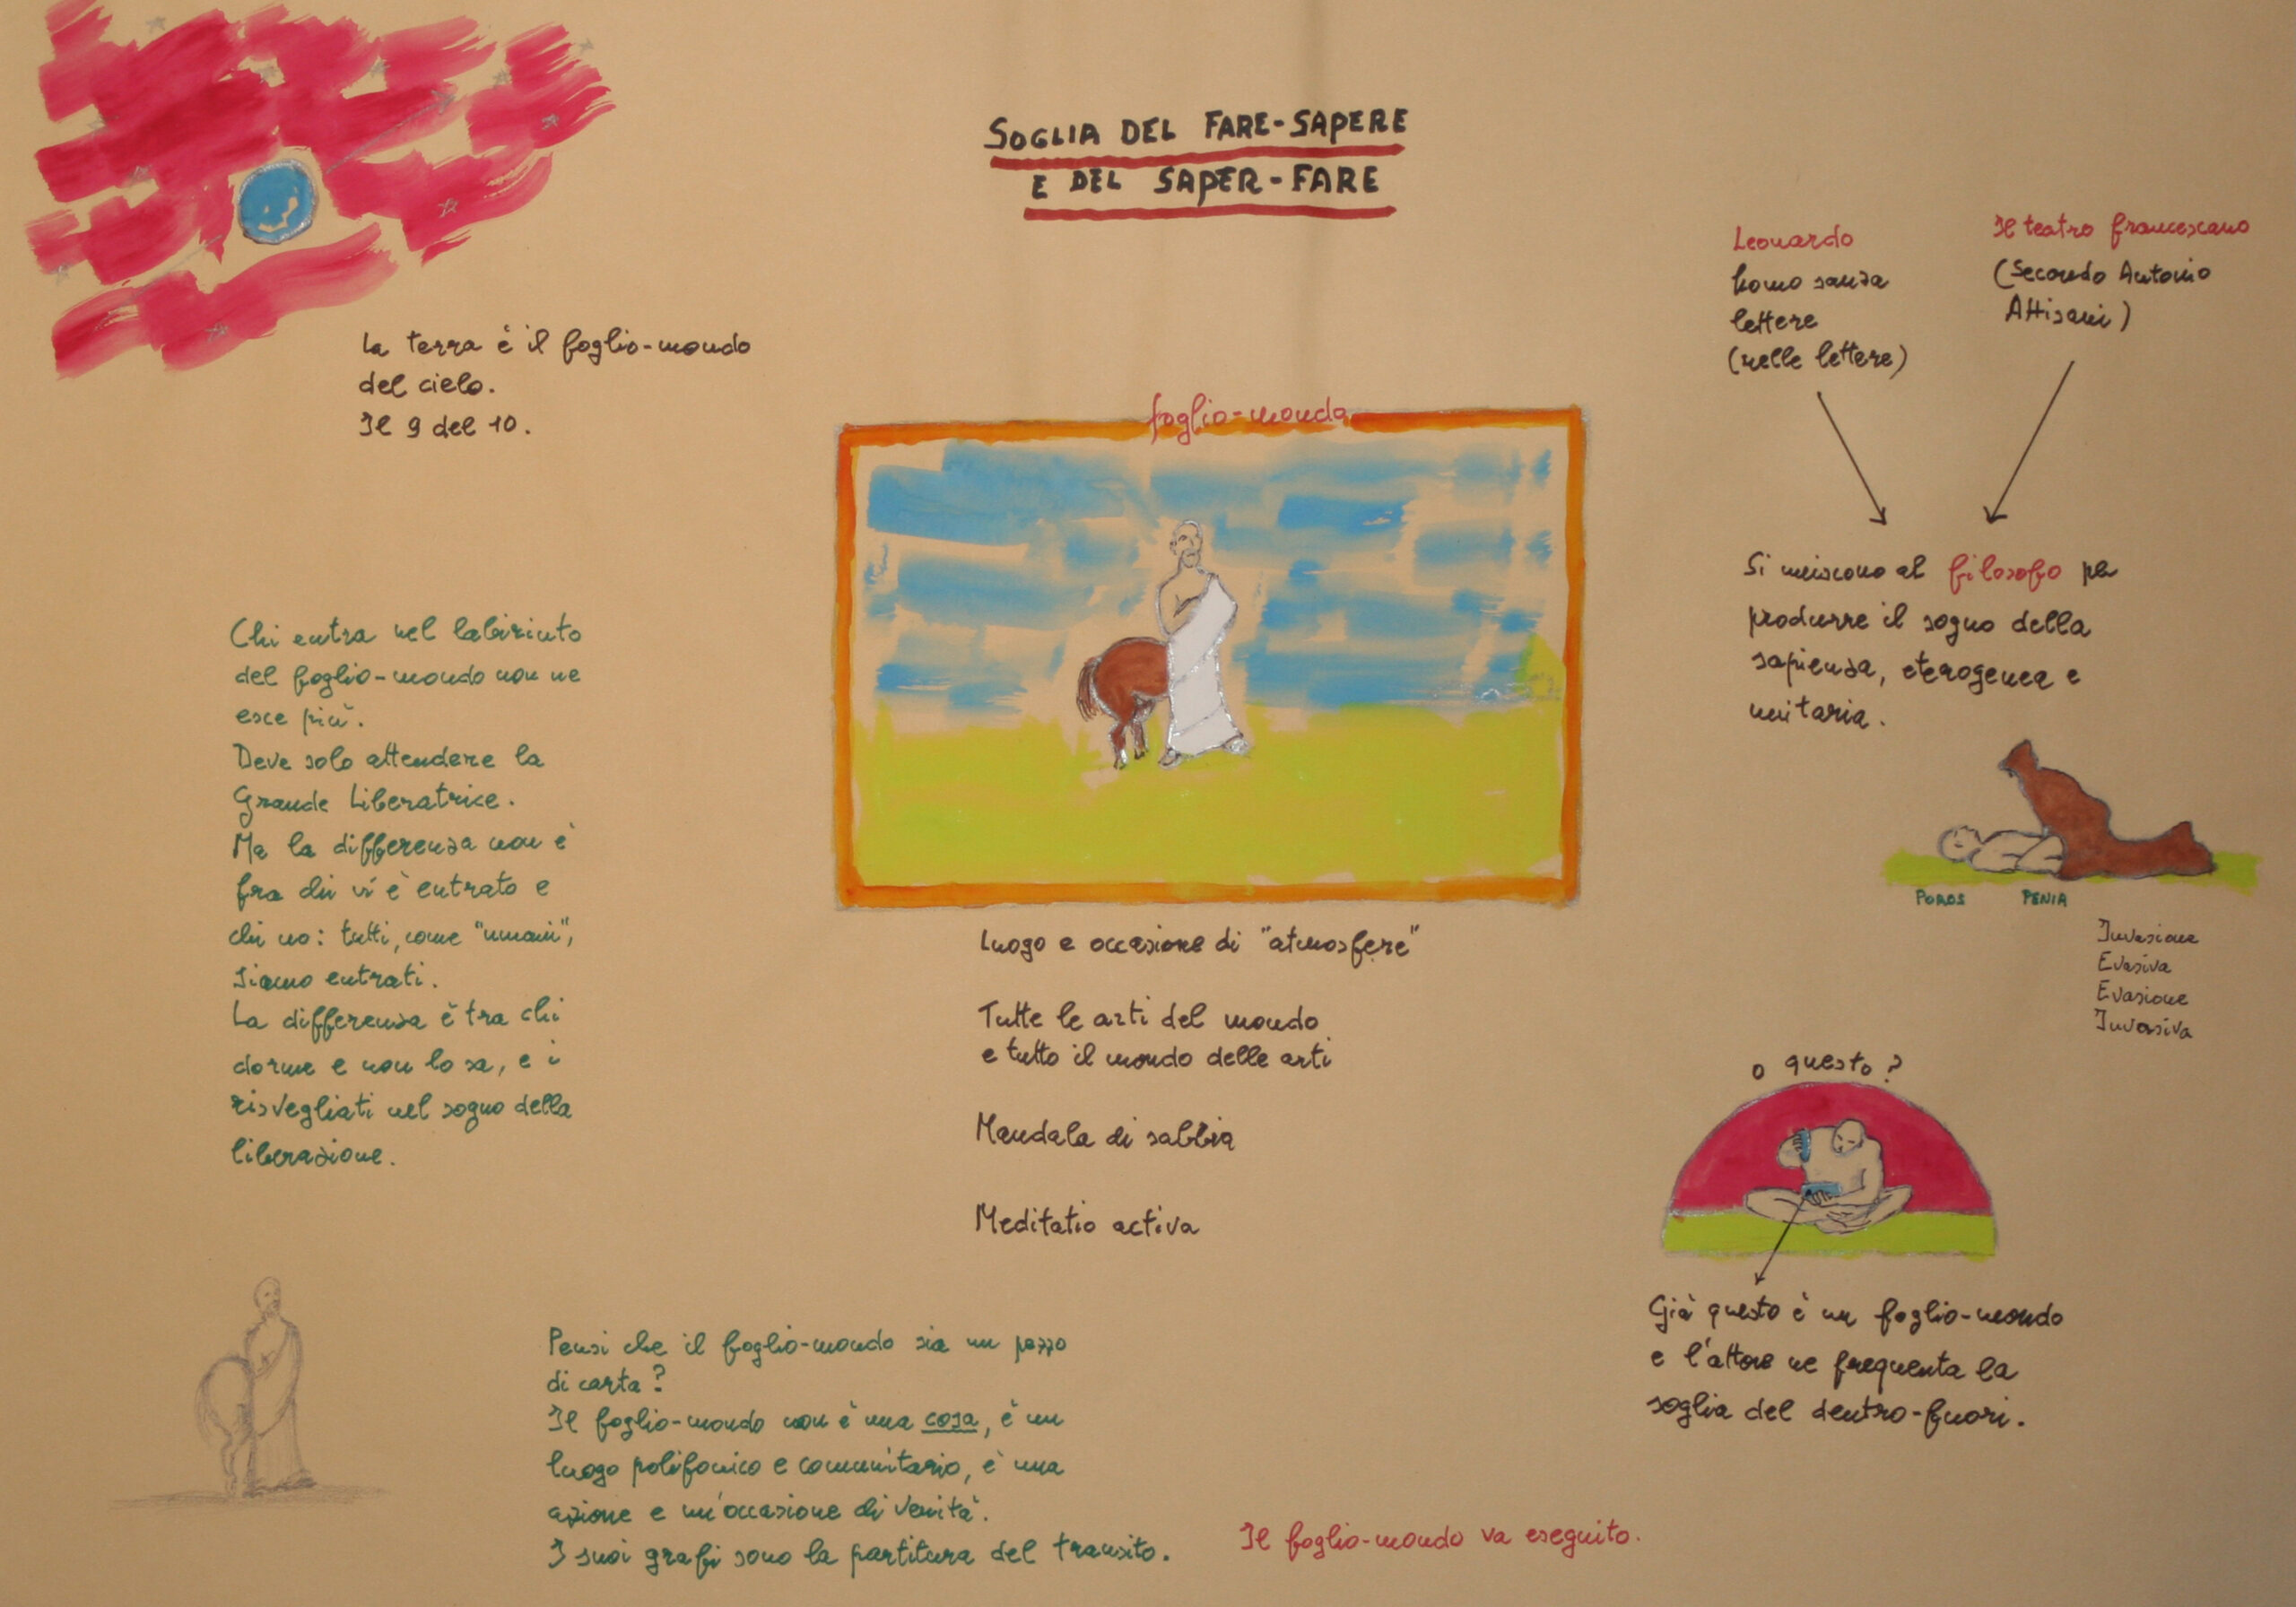 SOGLIA DEL FARE-SAPERE
E DEL SAPER-FARE
La terra è il foglio-mondo
del cielo.
Il 9 del 10.
Chi entra nel labirinto
del foglio-mondo non ne
esce più.
Deve solo attendere la
Grande Liberatrice.
Ma la differenza non è
fra chi vi è entrato e
chi no: tutti, come "umani",
siamo entrati.
La differenza è tra chi
dorme e non lo sa, e i
risvegliati nel sogno della
liberazione.
foglio-mondo
Luogo e occasione di "atmosfere"
Tutte le arti del mondo
e tutto il mondo delle arti
Mandala di sabbia
Meditatio activa
Leonardo
homo sanza
lettere
(nelle lettere)
Il teatro francescano
(Secondo Antonio
Attisani)
Si uniscono al filosofo per
produrre il sogno della
sapienza, eterogenea e
unitaria.
POROS PENIA
Invasione
Evasiva
Evasione
Invasiva
o questo?
Già questo è un foglio-mondo
e l'attore ne frequenta la
soglia del dentro-fuori.
Pensi che il foglio-mondo sia un pezzo
di carta?
Il foglio-mondo non è una cosa, è un
luogo polifonico e comunitario, è una
azione e un'occasione di verità.
I suoi grafi sono la partitura del transito.
Il foglio-mondo va eseguito.